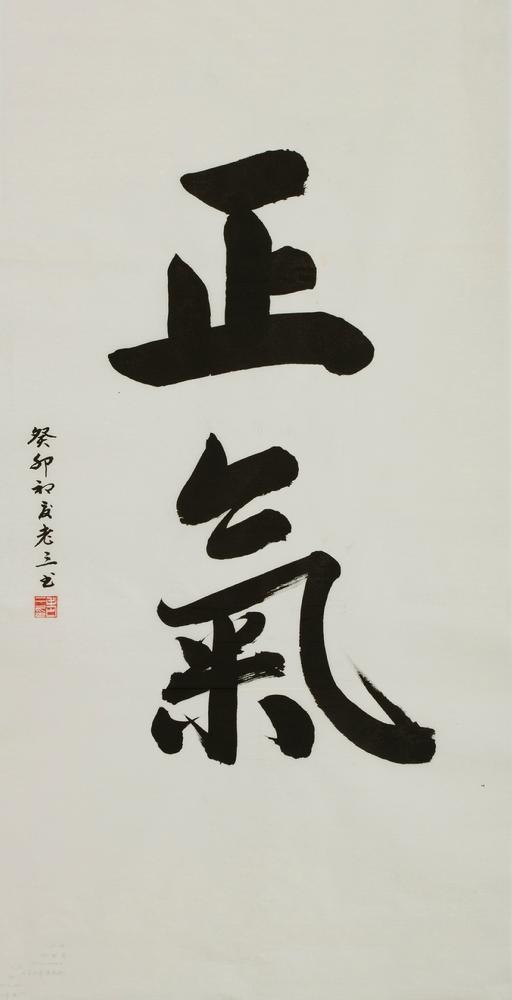 正氣
癸卯初夏老三书